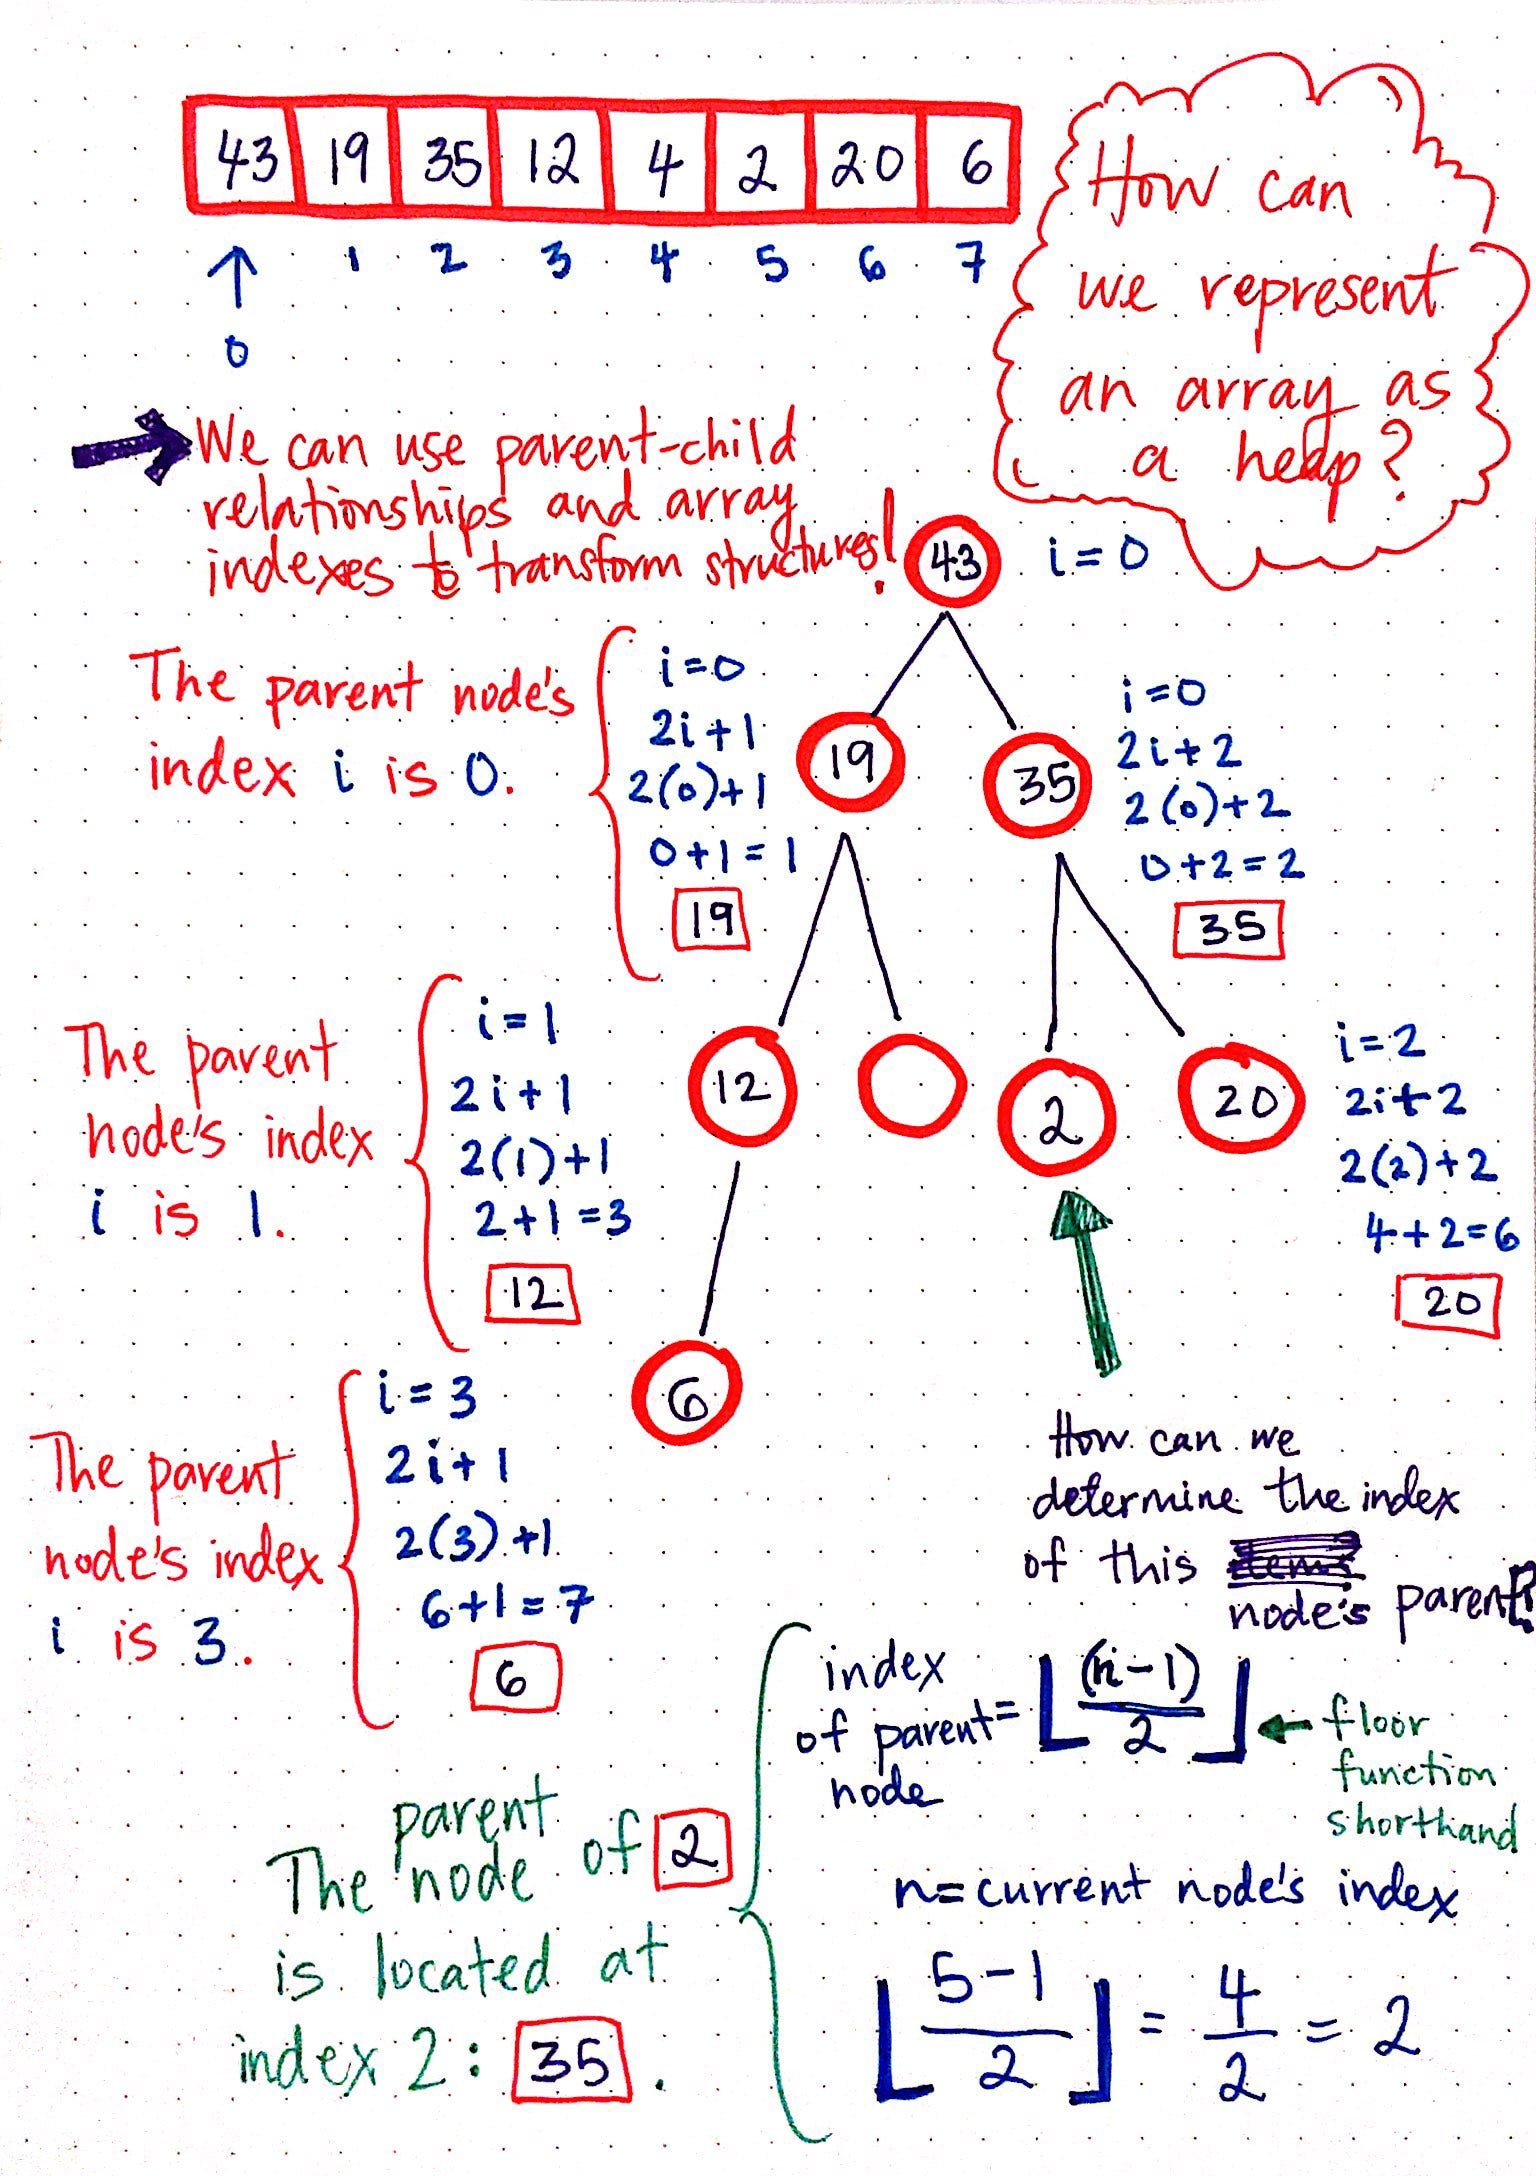 43 19 35 12 4 2 20 6
1 2 3 4 5 6 7
0
How can
we represent
an array as
a heap?
We can use parent-child
relationships and array
indexes to transform structures!
43 i = 0
The parent node's
index i is 0.
i = 0
2i + 1
2(0) + 1
0 + 1 = 1
19
19
35
i = 0
2i + 2
2(0) + 2
0 + 2 = 2
35
The parent
node's index
i is 1.
i = 1
2i + 1
2(1) + 1
2 + 1 = 3
12
12
2
20
i = 2
2i + 2
2(2) + 2
4 + 2 = 6
20
6
The parent
node's index
i is 3.
i = 3
2i + 1
2(3) + 1
6 + 1 = 7
6
How can we
determine the index
of this
node's parent?
index
of parent =
node
⌊(n-1)
2⌋
floor
function
shorthand
n = current node's index
⌊5-1
2⌋ = 4
2 = 2
The parent node of 2
is located at
index 2: 35.